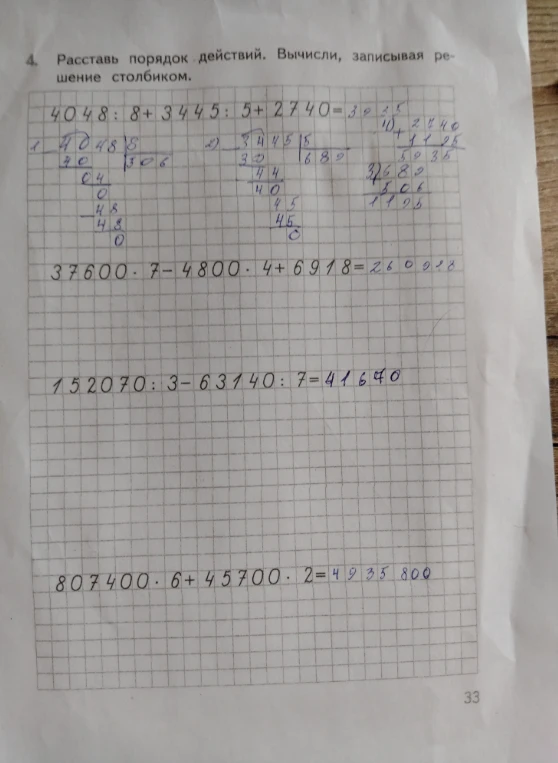 4. Расставь порядок действий. Вычисли, записывая ре-
шение столбиком.
4048 : 8 + 3445 : 5 + 2740 =
1) 4048 8
40 506
04
0
48
48
0
2) 3445 5
30 689
44
40
45
45
0
4) 2740
+
5935
3) 689
506
37600 · 7 - 4800 · 4 + 6918 = 260918
152070 : 3 - 63140 : 7 = 41670
807400 · 6 + 45700 · 2 = 4935800
33